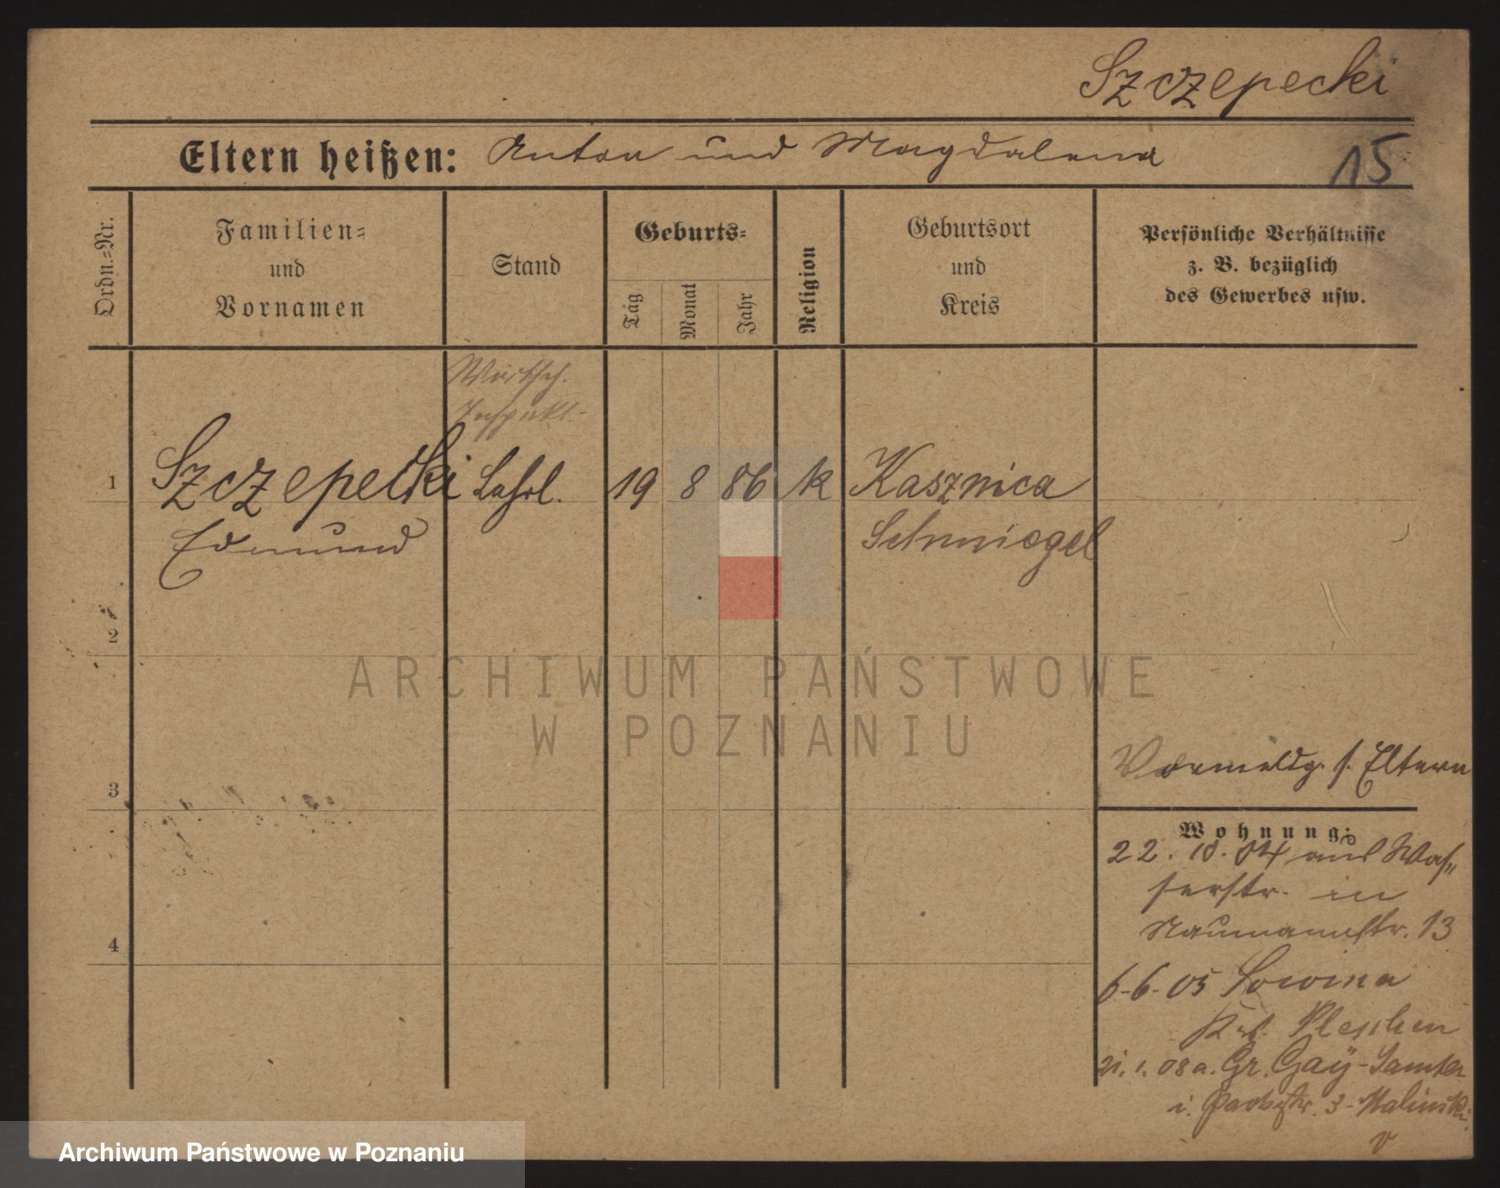 Szczepecki
Eltern heißen: Anton und Magdalena
15
Ordn.-Nr.
Familien-
und
Vornamen
Stand
Geburts-
Tag
Monat
Jahr
Religion
Geburtsort
und
Kreis
Persönliche Verhältnisse
z. B. bezüglich
des Gewerbes usw.
Wirtsch.
Inspekt.
1 Szczepecki 19 8 86 k Kasznica
Edmund Schmiegel
2
3
Vormeldg. s. Eltern
Wohnung:
22. 10. 04 aus Was-
serstr. in
Naumannstr. 13
4
6.6.05 Sowina
Krs. Pleschen
21.1.08 a. Gr. Gay-Samter
i. 3-Malinski
ARCHIWUM PAŃSTWOWE
W POZNANIU
Archiwum Państwowe w Poznaniu